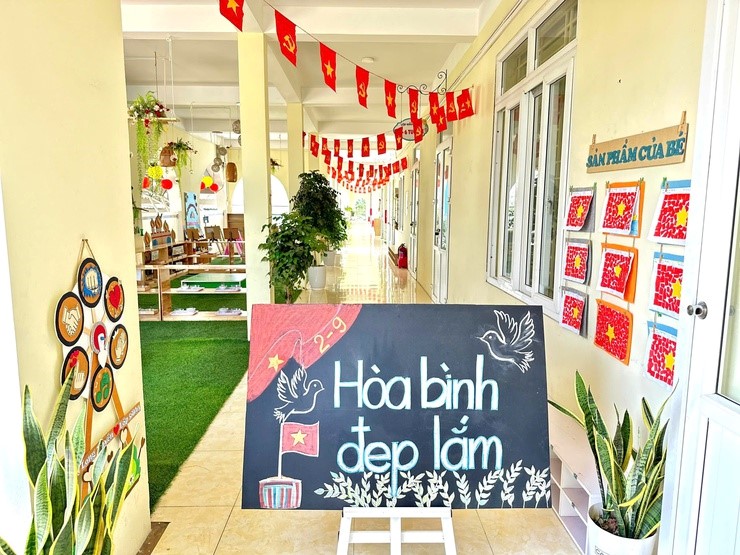 SẢN PHẨM CỦA BÉ
2-9
Hòa bình
đẹp lắm